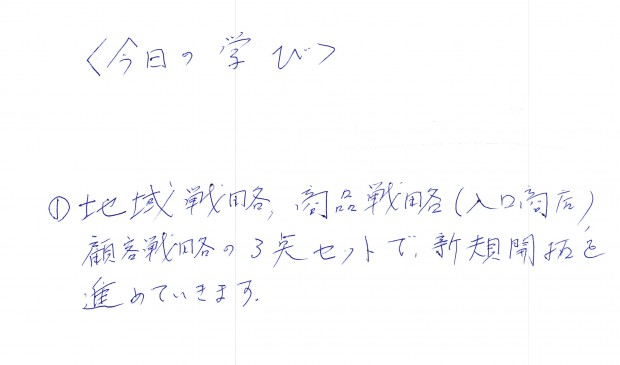 〈今日の学び〉
① 地域戦略, 商品戦略(入口商店)
顧客戦略の3点セットで, 新規開拓を
進めていきます.